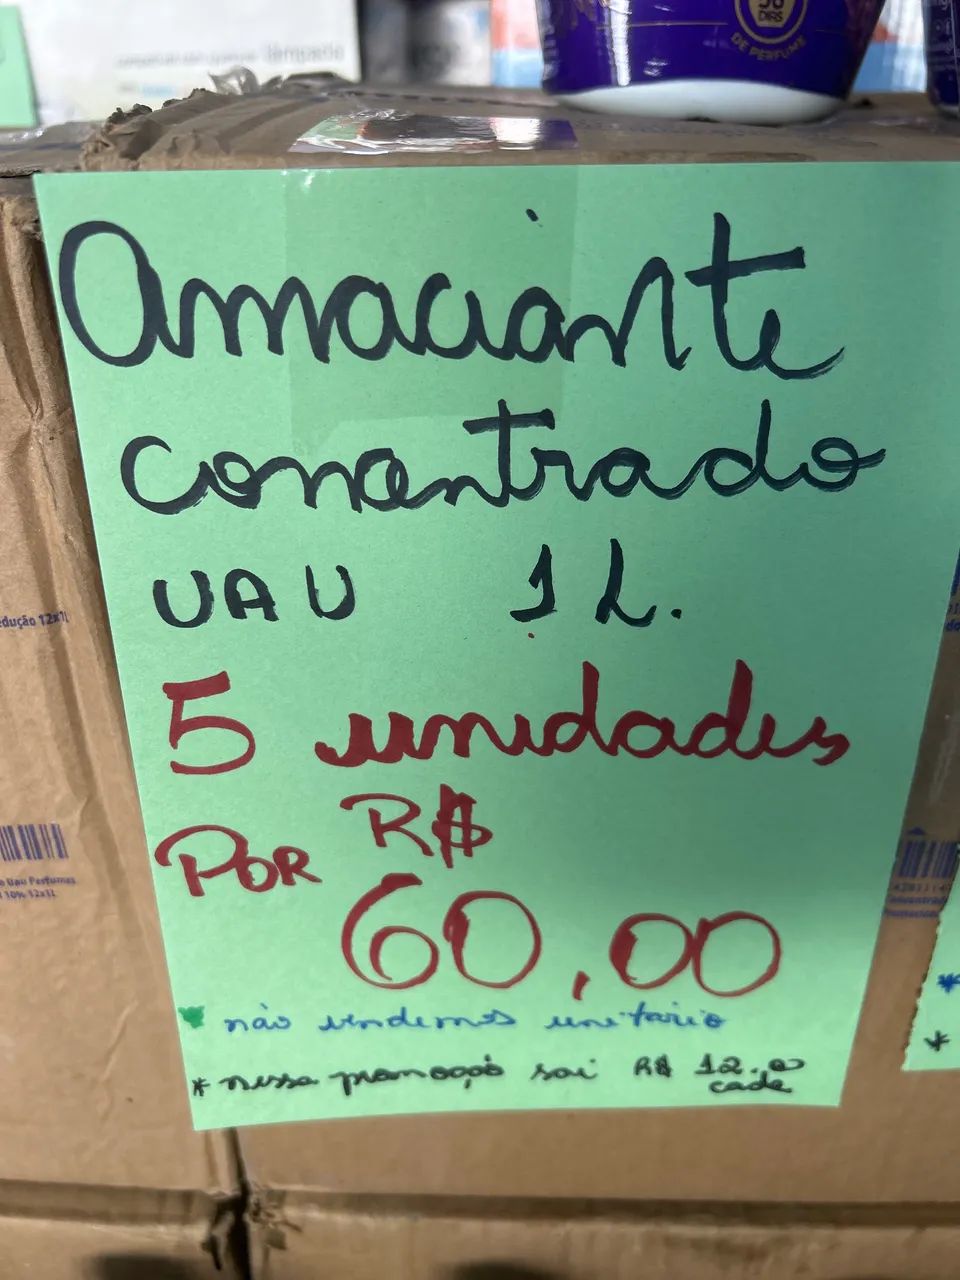 lâmpada
30
DIAS
DE PERFUME
Amaciante
concentrado
UAU 1L.
5 unidades
POR R$
60,00
não vendemos unitario
* nessa promoção sai R$ 12.a
cada
edução 12x1L
o Uau Perfumes
10% 12x1L
*
*